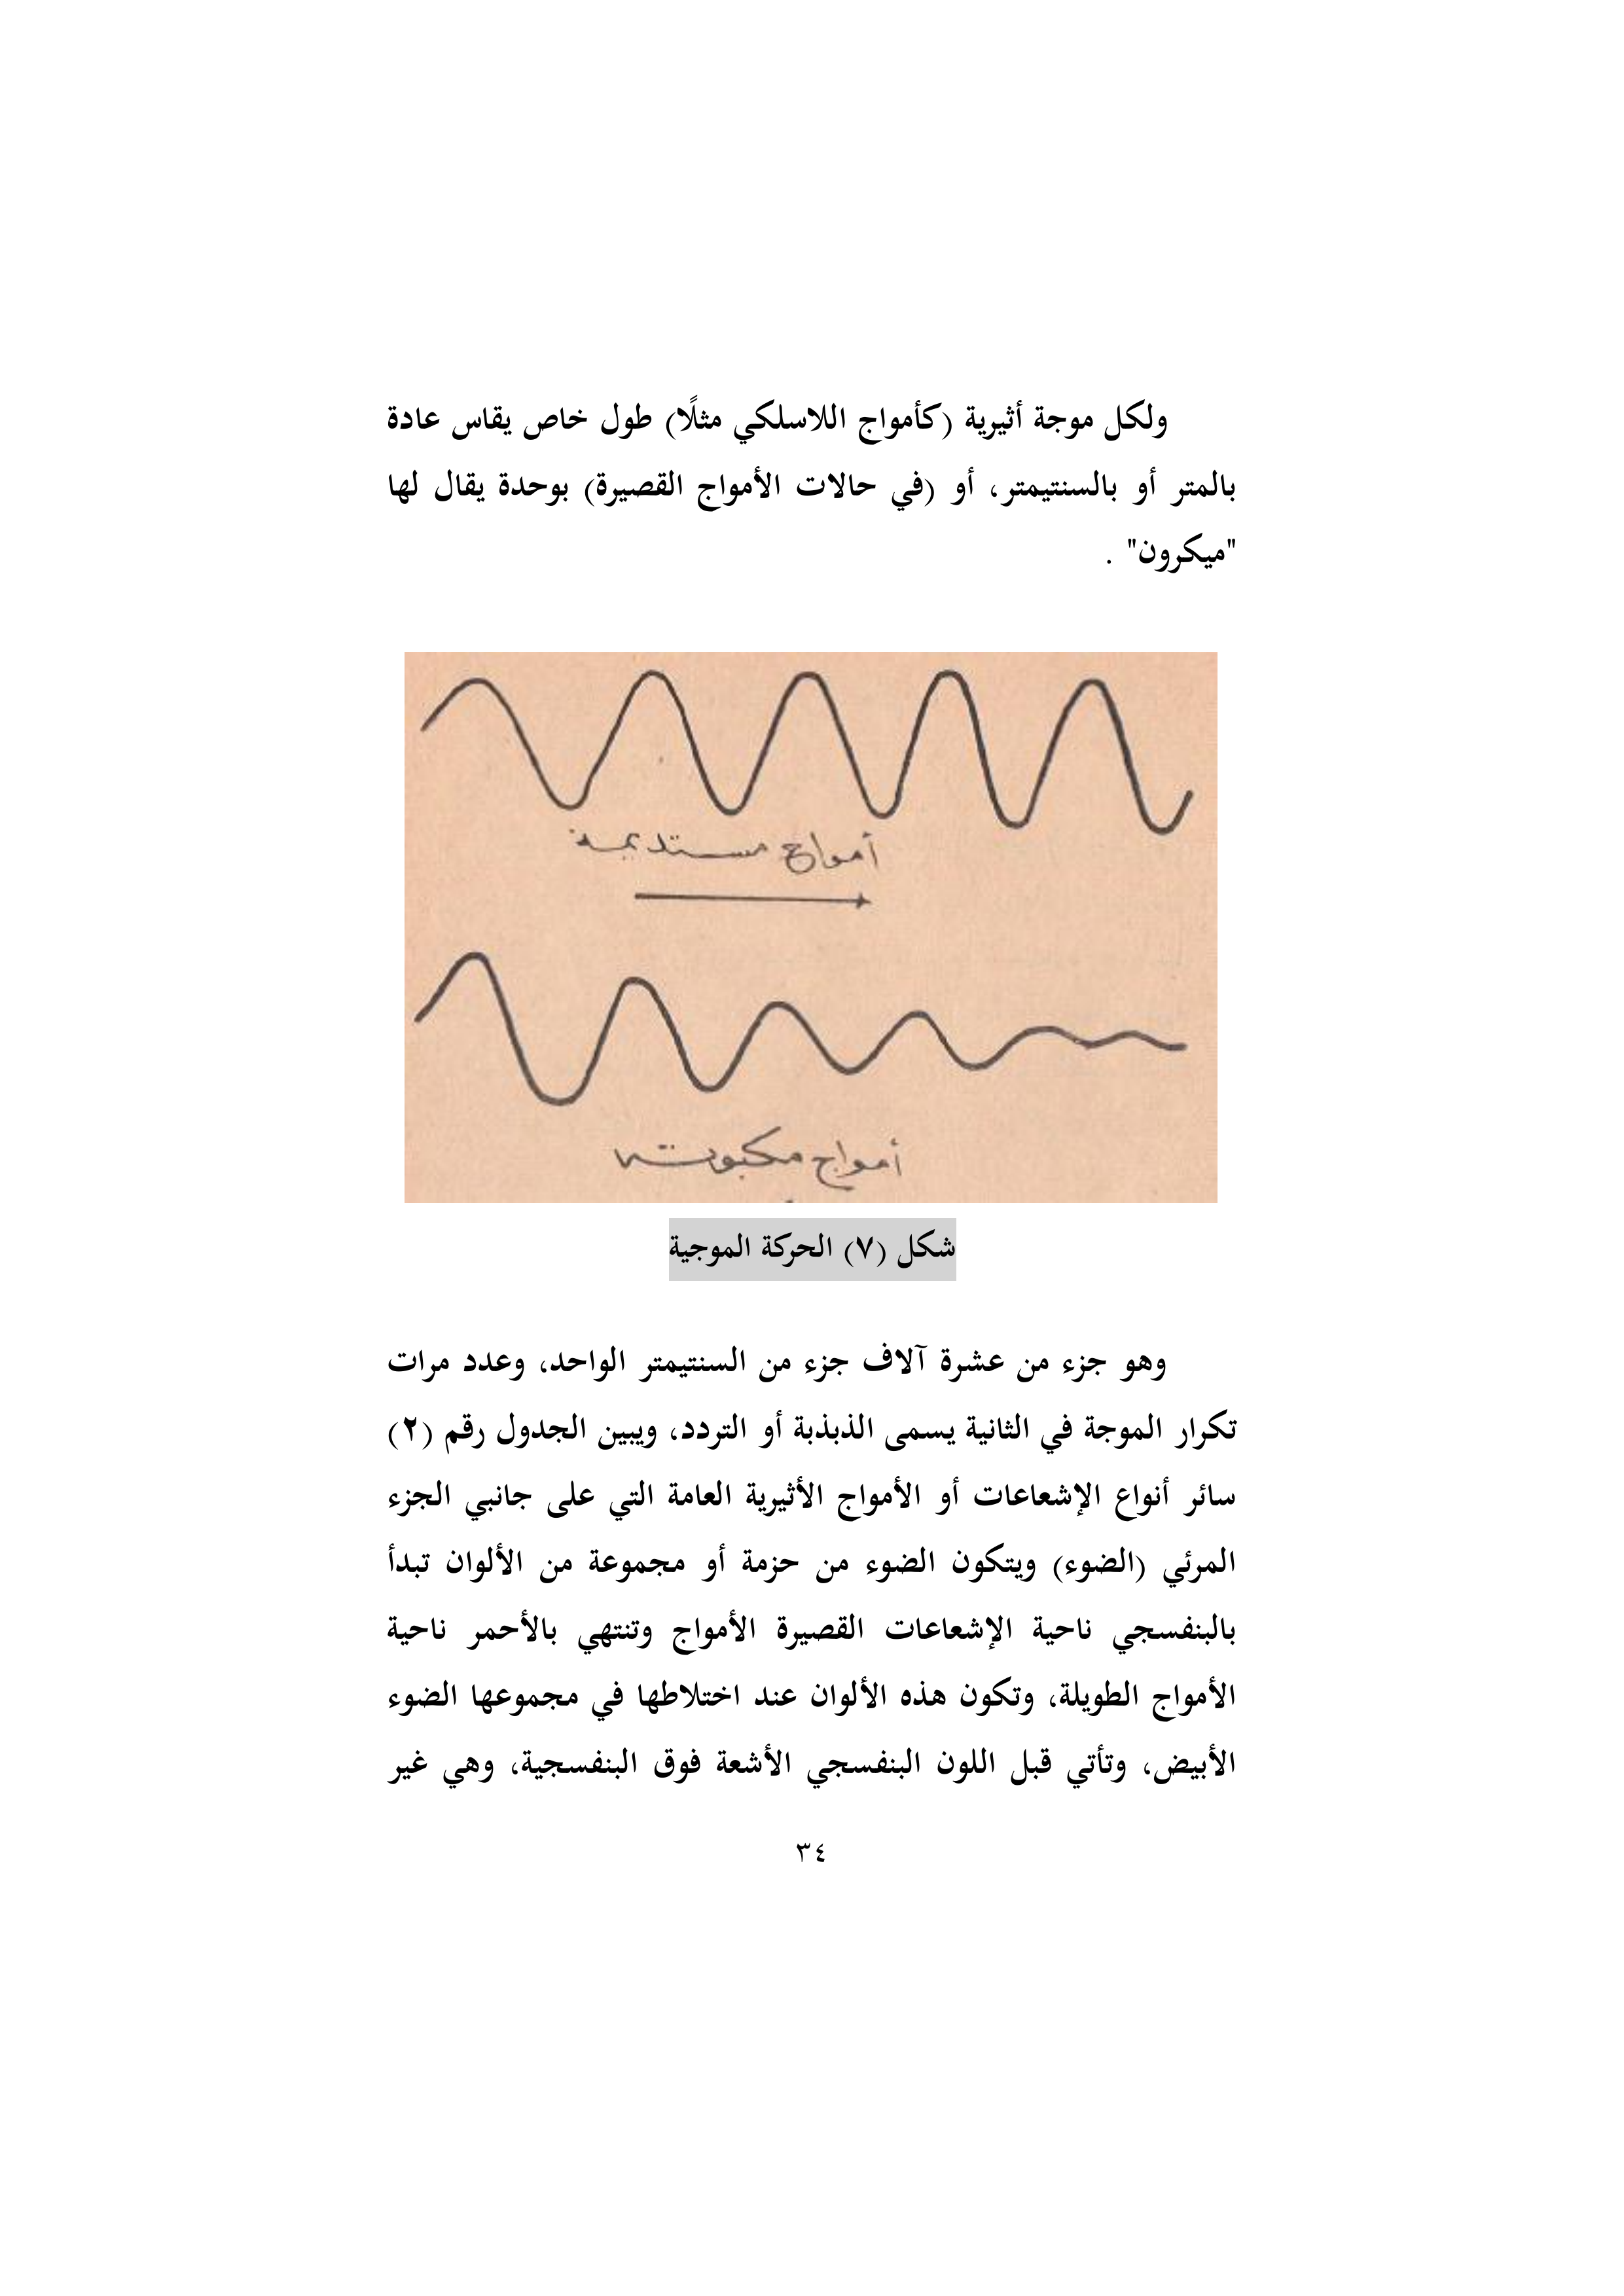 ولكل موجة أثيرية (كأمواج اللاسلكي مثلًا) طول خاص يقاس عادة
بالمتر أو بالسنتيمتر، أو (في حالات الأمواج القصيرة) بوحدة يقال لها
"ميكرون" .
أمواج مستديمة
أمواج مكبوتة
شكل (٧) الحركة الموجية
وهو جزء من عشرة آلاف جزء من السنتيمتر الواحد، وعدد مرات
تكرار الموجة في الثانية يسمى الذبذبة أو التردد، ويبين الجدول رقم (٢)
سائر أنواع الإشعاعات أو الأمواج الأثيرية العامة التي على جانبي الجزء
المرئي (الضوء) ويتكون الضوء من حزمة أو مجموعة من الألوان تبدأ
بالبنفسجي ناحية الإشعاعات القصيرة الأمواج وتنتهي بالأحمر ناحية
الأمواج الطويلة، وتكون هذه الألوان عند اختلاطها في مجموعها الضوء
الأبيض، وتأتي قبل اللون البنفسجي الأشعة فوق البنفسجية، وهي غير
٣٤